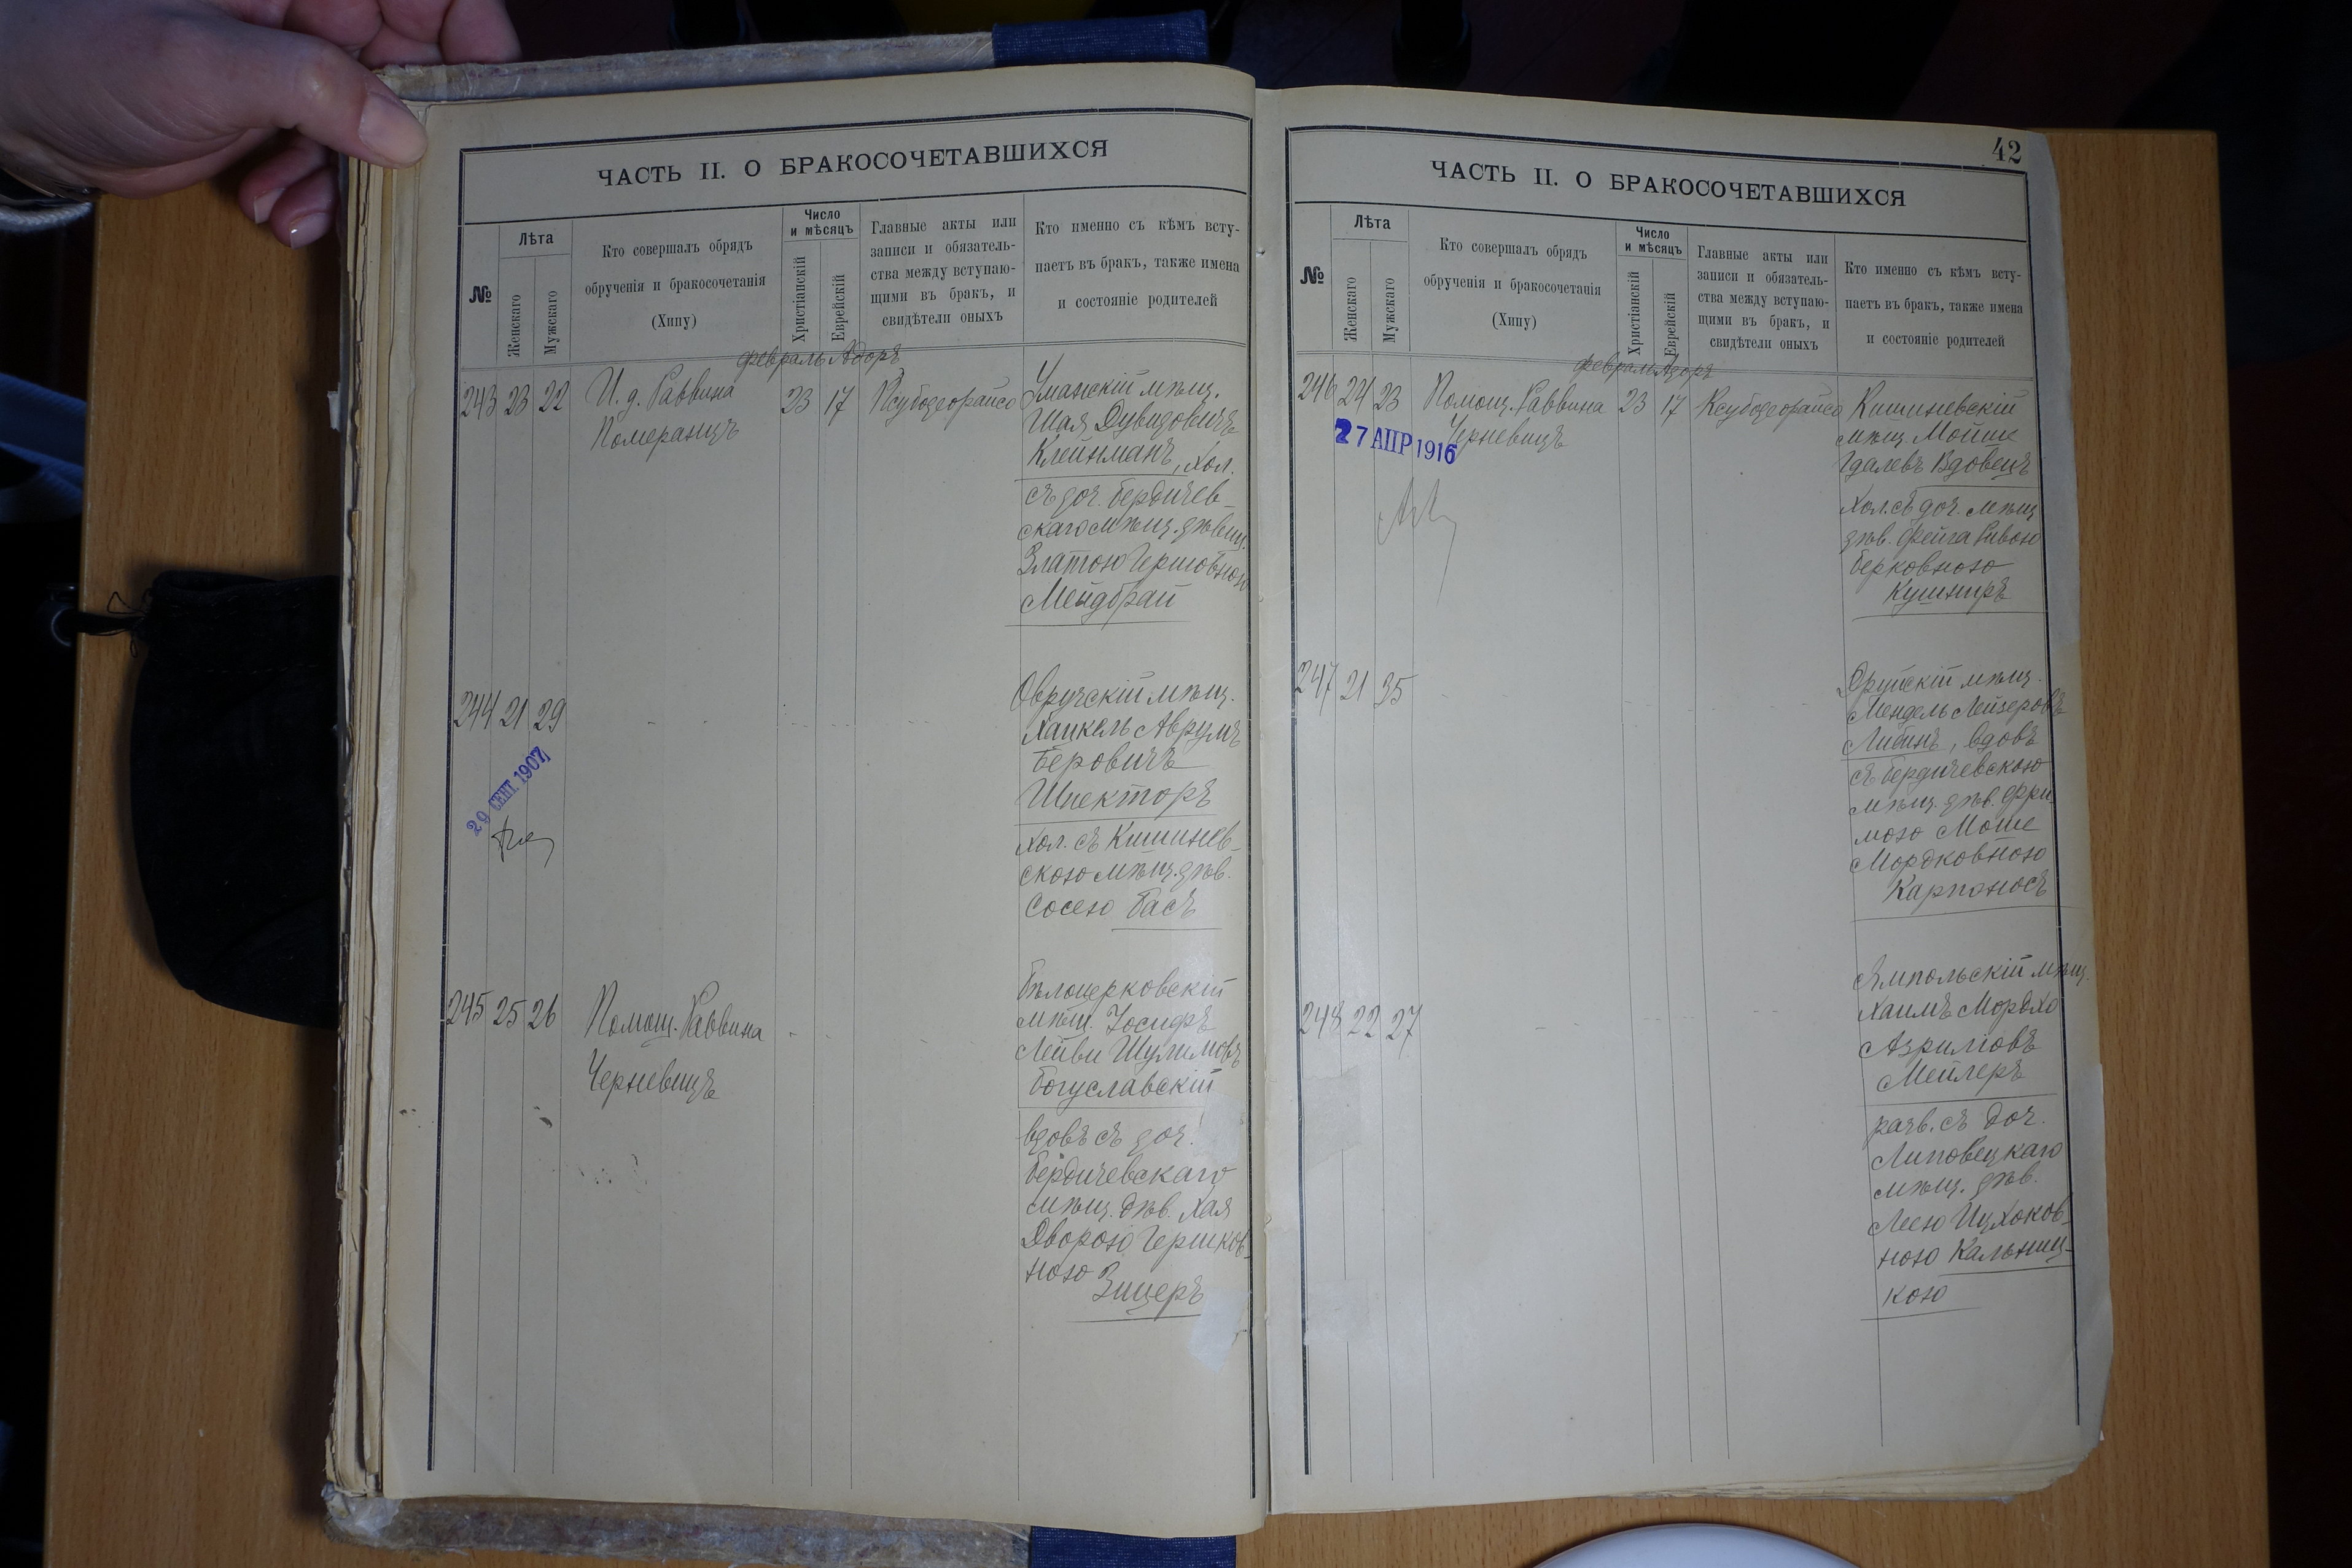 ЧАСТЬ II. О БРАКОСОЧЕТАВШИХСЯ
№
Лѣта
Женскаго
Мужскаго
Кто совершалъ обрядъ
обрученія и бракосочетанія
(Хипу)
Число
и мѣсяцъ
Христіанскій
Еврейскій
Главные акты или
записи и обязатель-
ства между вступаю-
щими въ бракъ, и
свидѣтели оныхъ
Кто именно съ кѣмъ всту-
паетъ въ бракъ, также имена
и состояніе родителей
февраль Адоръ
243 23 22
И. д. Раввина
Померанцъ
23 17
Уманскій мѣщ.
Шая Дувидовичъ
Клейнманъ, хол.
съ доч. Бердичев-
скаго мѣщ. дѣвиц.
Златою Гершовною
244 21 29
29 СЕНТ. 1907
Овручскій мѣщ.
Хаикель Аврумъ
Беровичъ
Шпекторъ
хол. съ Кишинев-
скою мѣщ. дѣв.
Сосею Басъ
245 25 26
Помощ. Раввина
Черневицъ
Бѣлоцерковскій
мѣщ. Іосифъ
Лейви Шулимовъ
Богуславскій
вдовъ съ доч.
Бердичевскаго
мѣщ. дѣв. Хая
Дворою Гершков-
ною Зицеръ
42
ЧАСТЬ II. О БРАКОСОЧЕТАВШИХСЯ
№
Лѣта
Женскаго
Мужскаго
Кто совершалъ обрядъ
обрученія и бракосочетанія
(Хипу)
Число
и мѣсяцъ
Христіанскій
Еврейскій
Главные акты или
записи и обязатель-
ства между вступаю-
щими въ бракъ, и
свидѣтели оныхъ
Кто именно съ кѣмъ всту-
паетъ въ бракъ, также имена
и состояніе родителей
февраль Адоръ
246 24 23
Помощ. Раввина
Черневицъ
23 17
27 АПР 1916
Кишиневскій
мѣщ. Мойше
Гдалевъ Вдовецъ
хол. съ доч. мѣщ
дѣв. Фейга Ривою
Берковною
Кушниръ
247 21 35
Друйскій мѣщ.
Мендель Лейзеровъ
Либинъ, вдовъ
съ Бердичевскою
мѣщ. дѣв. Фри-
мою
Мордковною
Карпоносъ
248 22 27
Ямпольскій мѣщ.
Хаимъ Мордхо
Азриліовъ
Мейлеръ
разв. съ доч.
Липовецкаго
мѣщ. дѣв.
Леею Ицхоков-
ною Кальниц-
кою